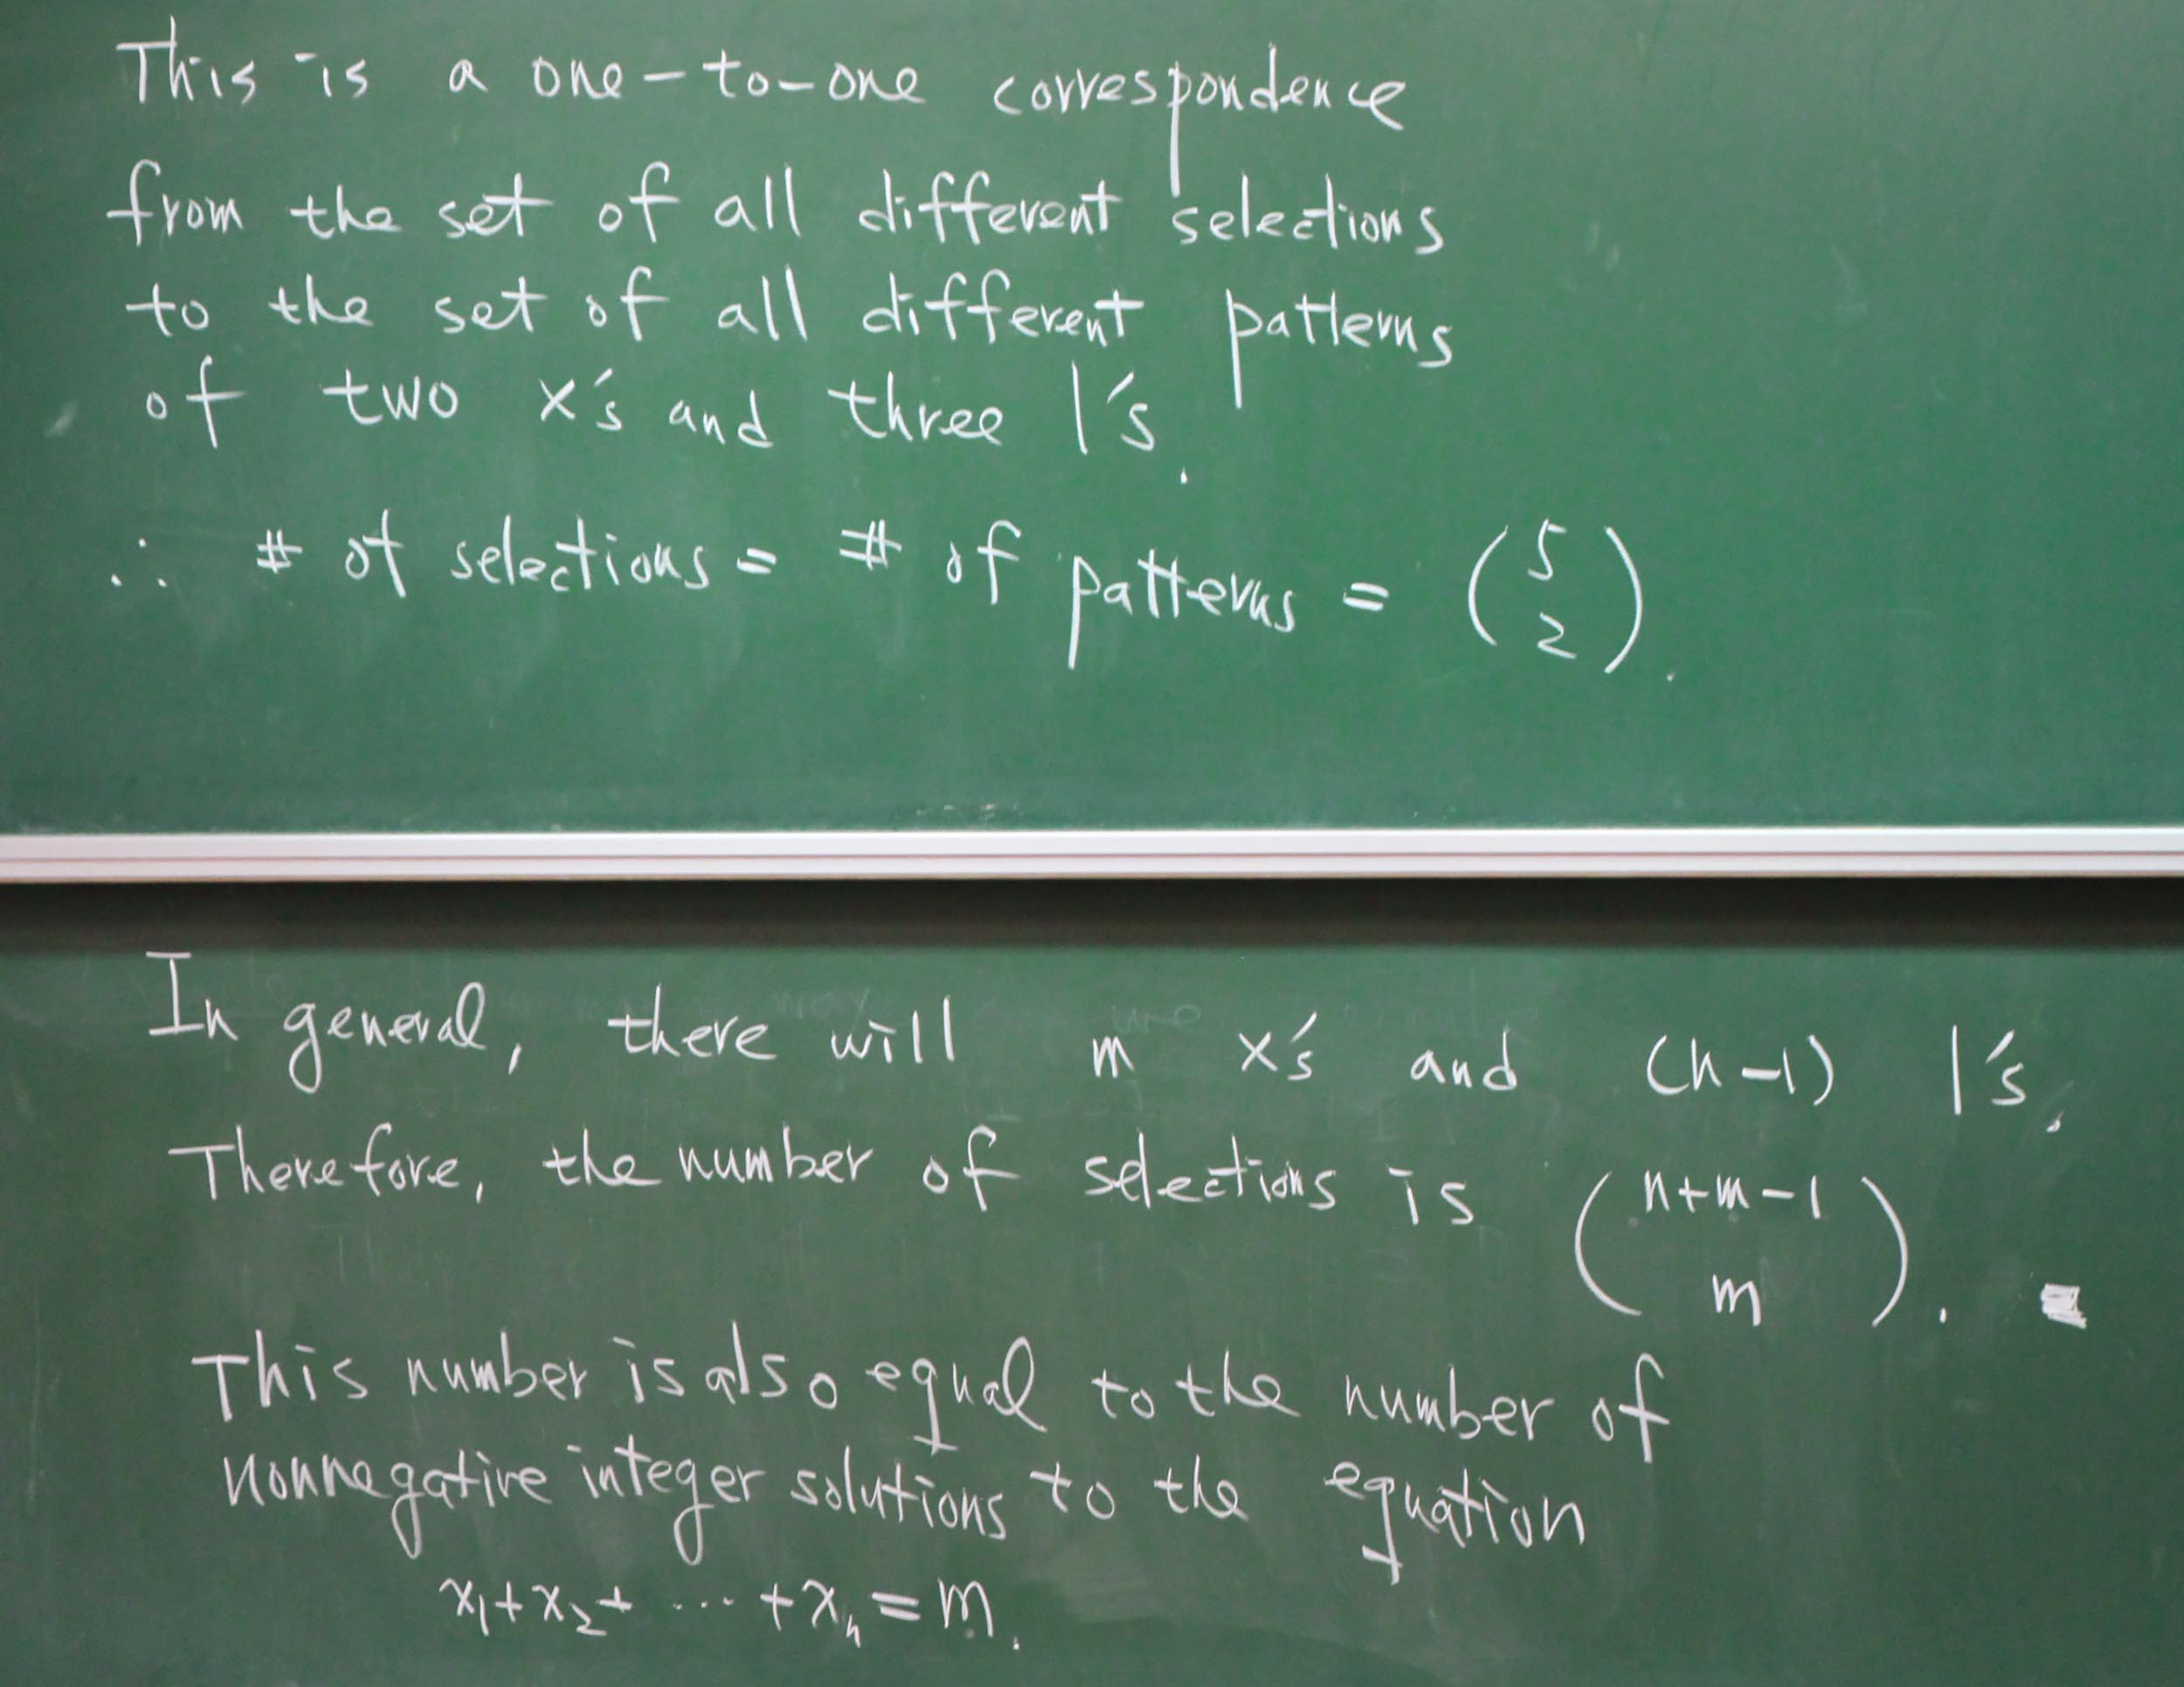 This is a one-to-one correspondence
from the set of all different selections
to the set of all different patterns
of two x's and three |'s.
∴ # of selections = # of patterns = (5 2).
In general, there will m x's and (n-1) |'s.
Therefore, the number of selections is (n+m-1 m).
This number is also equal to the number of
nonnegative integer solutions to the equation
x₁+x₂+ ... +xₙ=m.